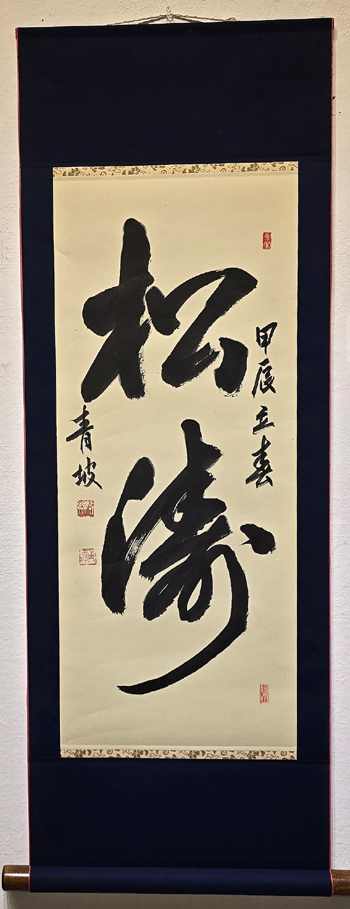 甲辰立春
松濤
青坡